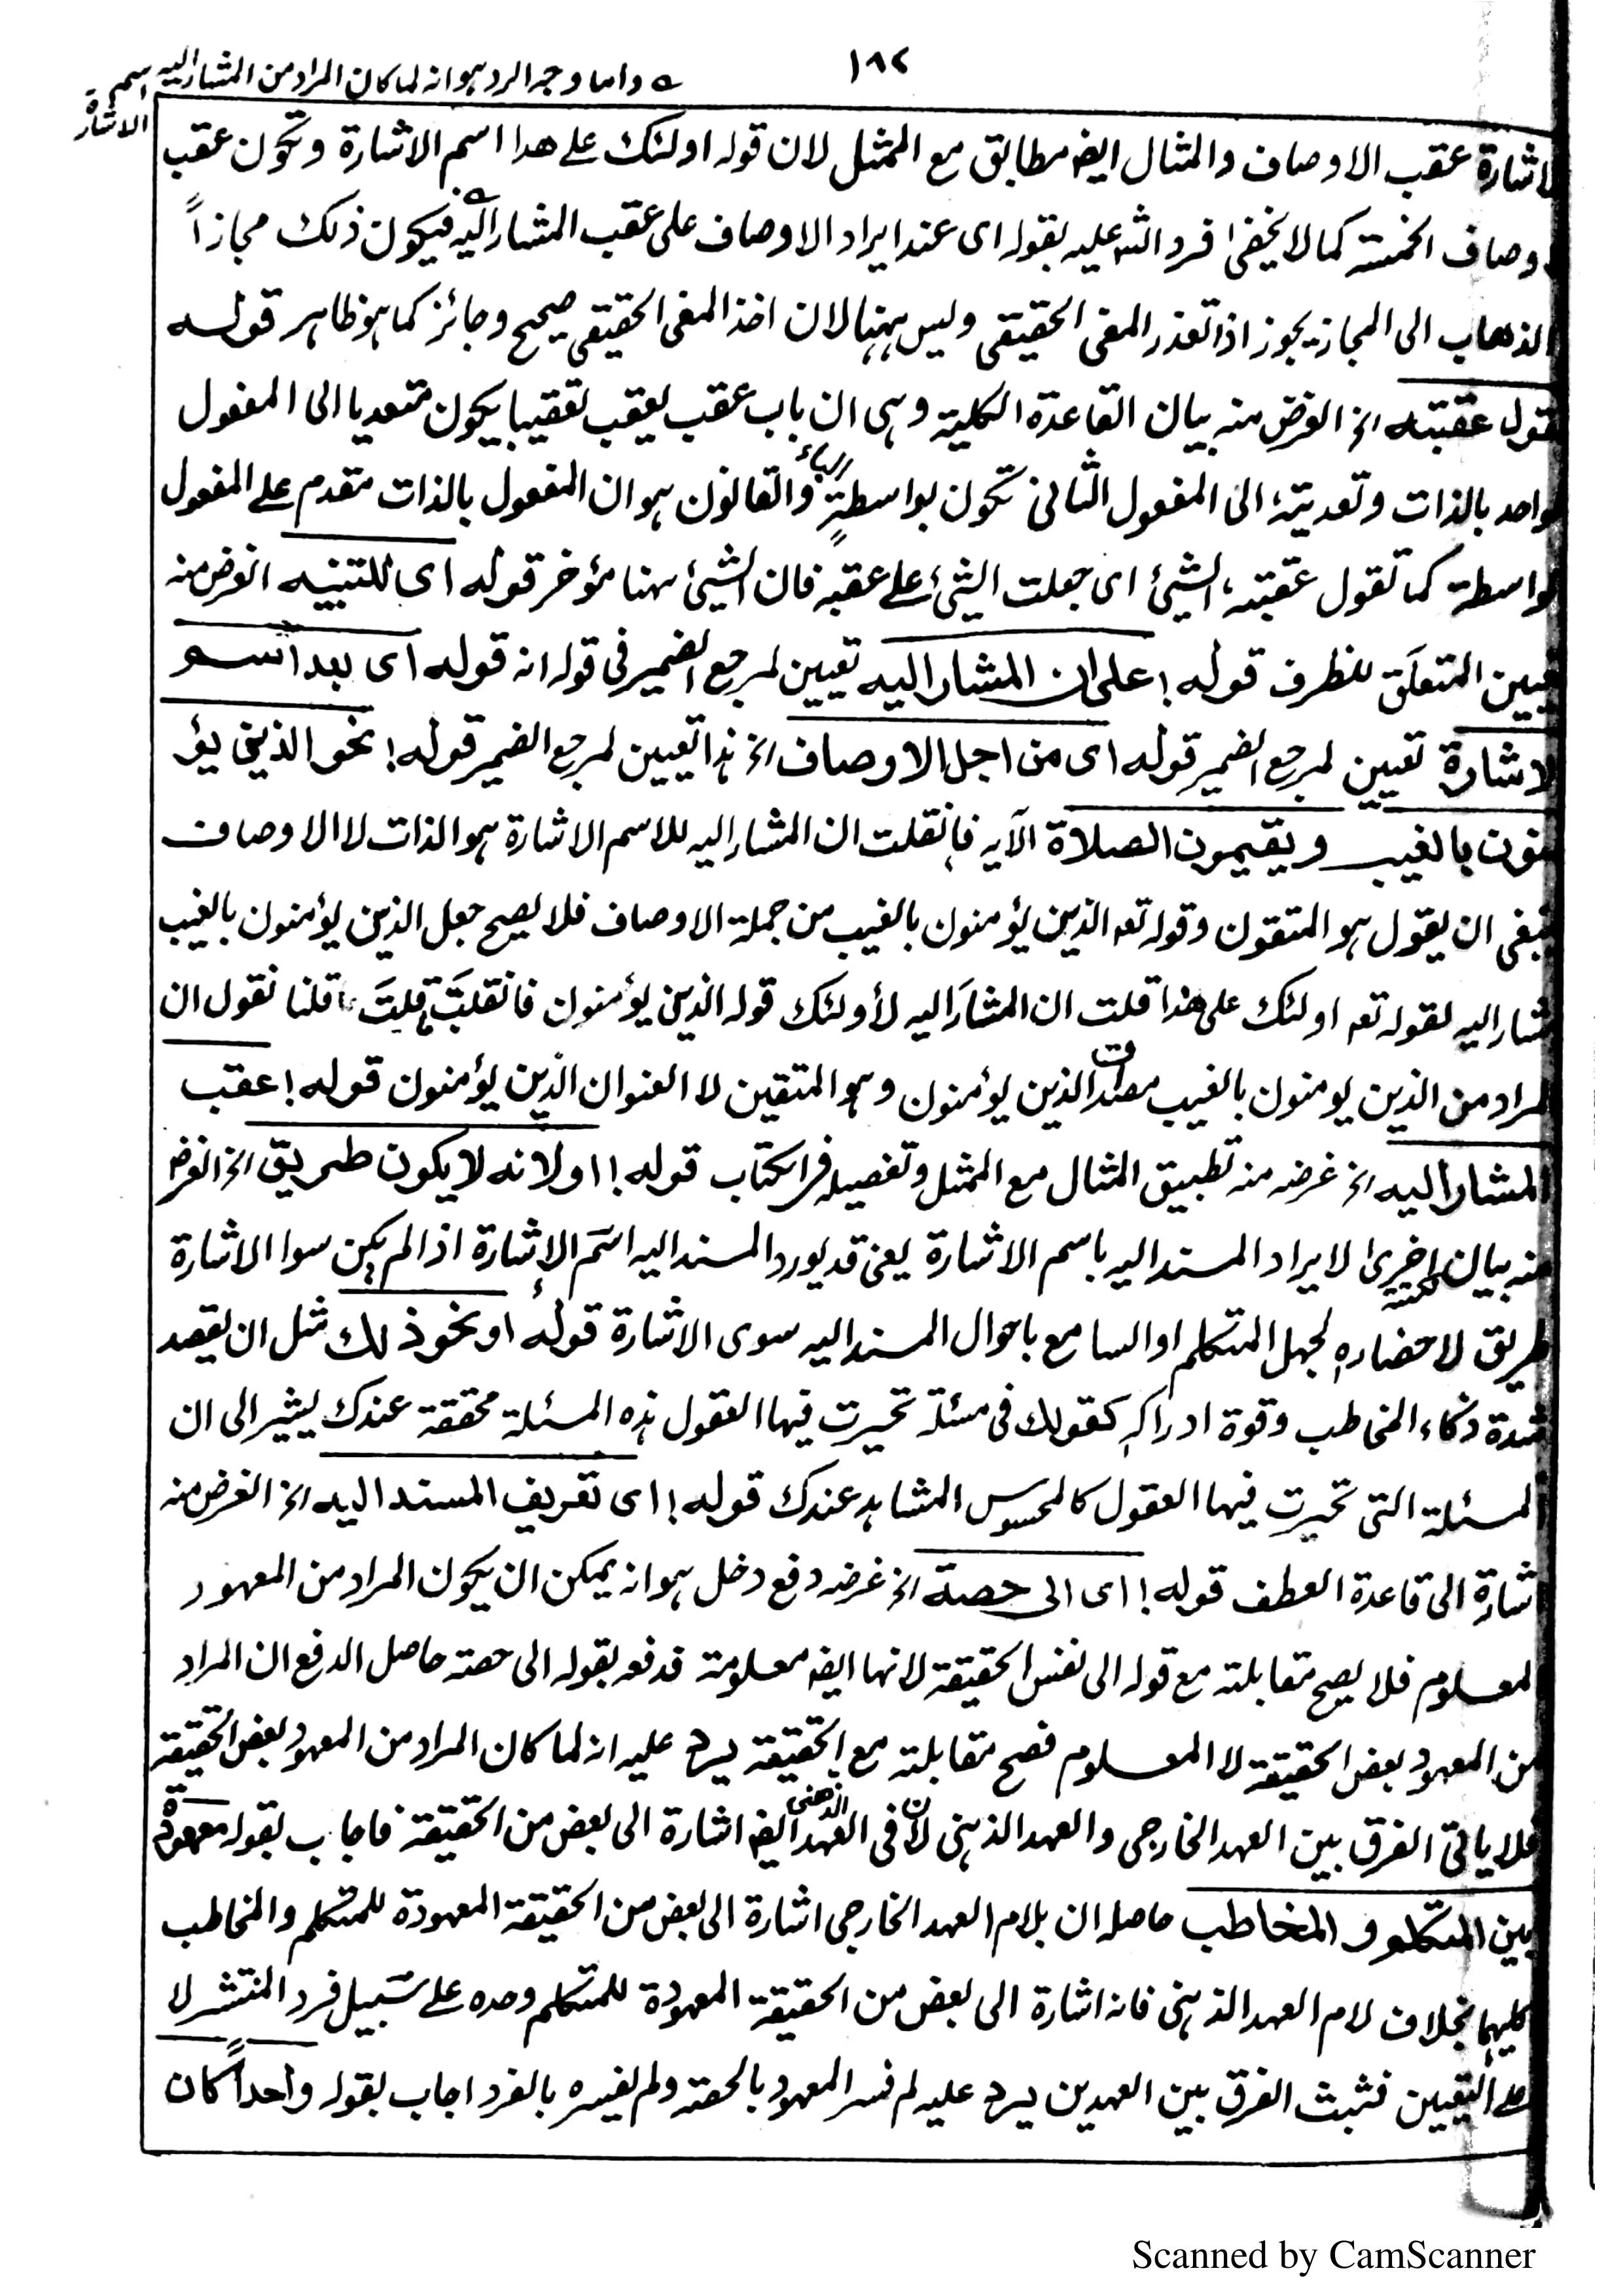 ١٨٢
واما وجه الرد هو انه لما كان المراد من المشار اليه اسم
الاشارة
لاشارة عقب الاوصاف والمثال ايضه مطابق مع الممثل لان قوله اولئك على هدا اسم الاشارة وتكون عقب
اوصاف الخمسة كما لا يخفى فرد الشه عليه بقوله اى عند ايراد الاوصاف على عقب المشار اليه فيكون ذلك مجازاً
الذهاب الى المجاز يجوز اذا تعذر المعنى الحقيقى وليس ههنا لان اخذ المعنى الحقيقى صحيح وجائز كما هو ظاهر قوله
قول عقبته الخ الغرض منه بيان القاعدة الكلية وهى ان باب عقب يعقب تعقيبا يكون متعديا الى المفعول
واحد بالذات وتعديته الى المفعول الثانى تكون بواسطة الباء والقانون هو ان المفعول بالذات مقدم على المفعول
بواسطة كما تقول عقبته بالشيئ اى جعلت الشيئ على عقبه فان الشيئ ههنا مؤخر قوله اى للتنبيه الغرض منه
تعيين المتعلق للظرف قوله! على ان المشار اليه تعيين لمرجع الضمير فى قوله انه قوله اى بعد اسم
لاشارة تعيين لمرجع الضمير قوله اى من اجل الاوصاف الخ هذا تعيين لمرجع الضمير قوله! نحو الذين يؤ
منون بالغيب ويقيمون الصلاة الآيه فانقلت ان المشار اليه للاسم الاشارة هو الذات لا الاوصاف
ينبغى ان يقول هو المتقون وقوله تعه الذين يؤمنون بالغيب من جملة الاوصاف فلا يصح جعل الذين يؤمنون بالغيب
مشار اليه لقوله تعه اولئك على هذا قلت ان المشار اليه لأولئك قوله الذين يؤمنون فانقلبَت ما قلتَ قلنا نقول ان
المراد من الذين يومنون بالغيب مصداق الذين يؤمنون وهو المتقين لا العنوان الذين يؤمنون قوله! عقب
المشار اليه الخ غرضه منه تطبيق المثال مع الممثل وتفصيله فى الكتاب قوله! او لانه لا يكون طريق الخ الغرض
منه بيان نكتة اخرى لايراد المسند اليه باسم الاشارة يعنى قد يورد المسند اليه اسم الاشارة اذا لم يكن سوا الاشارة
طريق لاحضاره لجهل المتكلم او السامع باحوال المسند اليه سوى الاشارة قوله او نحو ذلك مثل ان يقصد
شدة ذكاء المخاطب وقوة ادراكه كقولك فى مسئلة تحيرت فيها العقول هذه المسئلة محققة عندك يشير الى ان
المسئلة التى تحيرت فيها العقول كالمحسوس المشاهد عندك قوله! اى تعريف المسند اليه الخ الغرض منه
اشارة الى قاعدة العطف قوله! اى الى حصة الخ غرضه دفع دخل هو انه يمكن ان يكون المراد من المعهود
المعلوم فلا يصح مقابلته مع قوله الى نفس الحقيقة لانها ايضه معلومة فدفعه بقوله الى حصته حاصل الدفع ان المراد
من المعهود بعض الحقيقة لا المعلوم فصح مقابلته مع الحقيقة يرد عليه انه لما كان المراد من المعهود بعض الحقيقة
فلا ياتى الفرق بين العهد الخارجى والعهد الذهنى لان فى العهد الذهنى ايضه اشارة الى بعض من الحقيقة فاجاب بقوله معهودة
بين المتكلم و المخاطب حاصله ان بلام العهد الخارجى اشارة الى بعض من الحقيقة المعهودة للمتكلم والمخاطب
كليهما بخلاف لام العهد الذهنى فانه اشارة الى بعض من الحقيقة المعهودة للمتكلم وحده على سبيل فرد المنتشر لا
على التعيين فثبت الفرق بين العهدين يرد عليه لم فسر المعهود بالحصة ولم يفسره بالفرد اجاب بقوله واحداً كان
Scanned by CamScanner